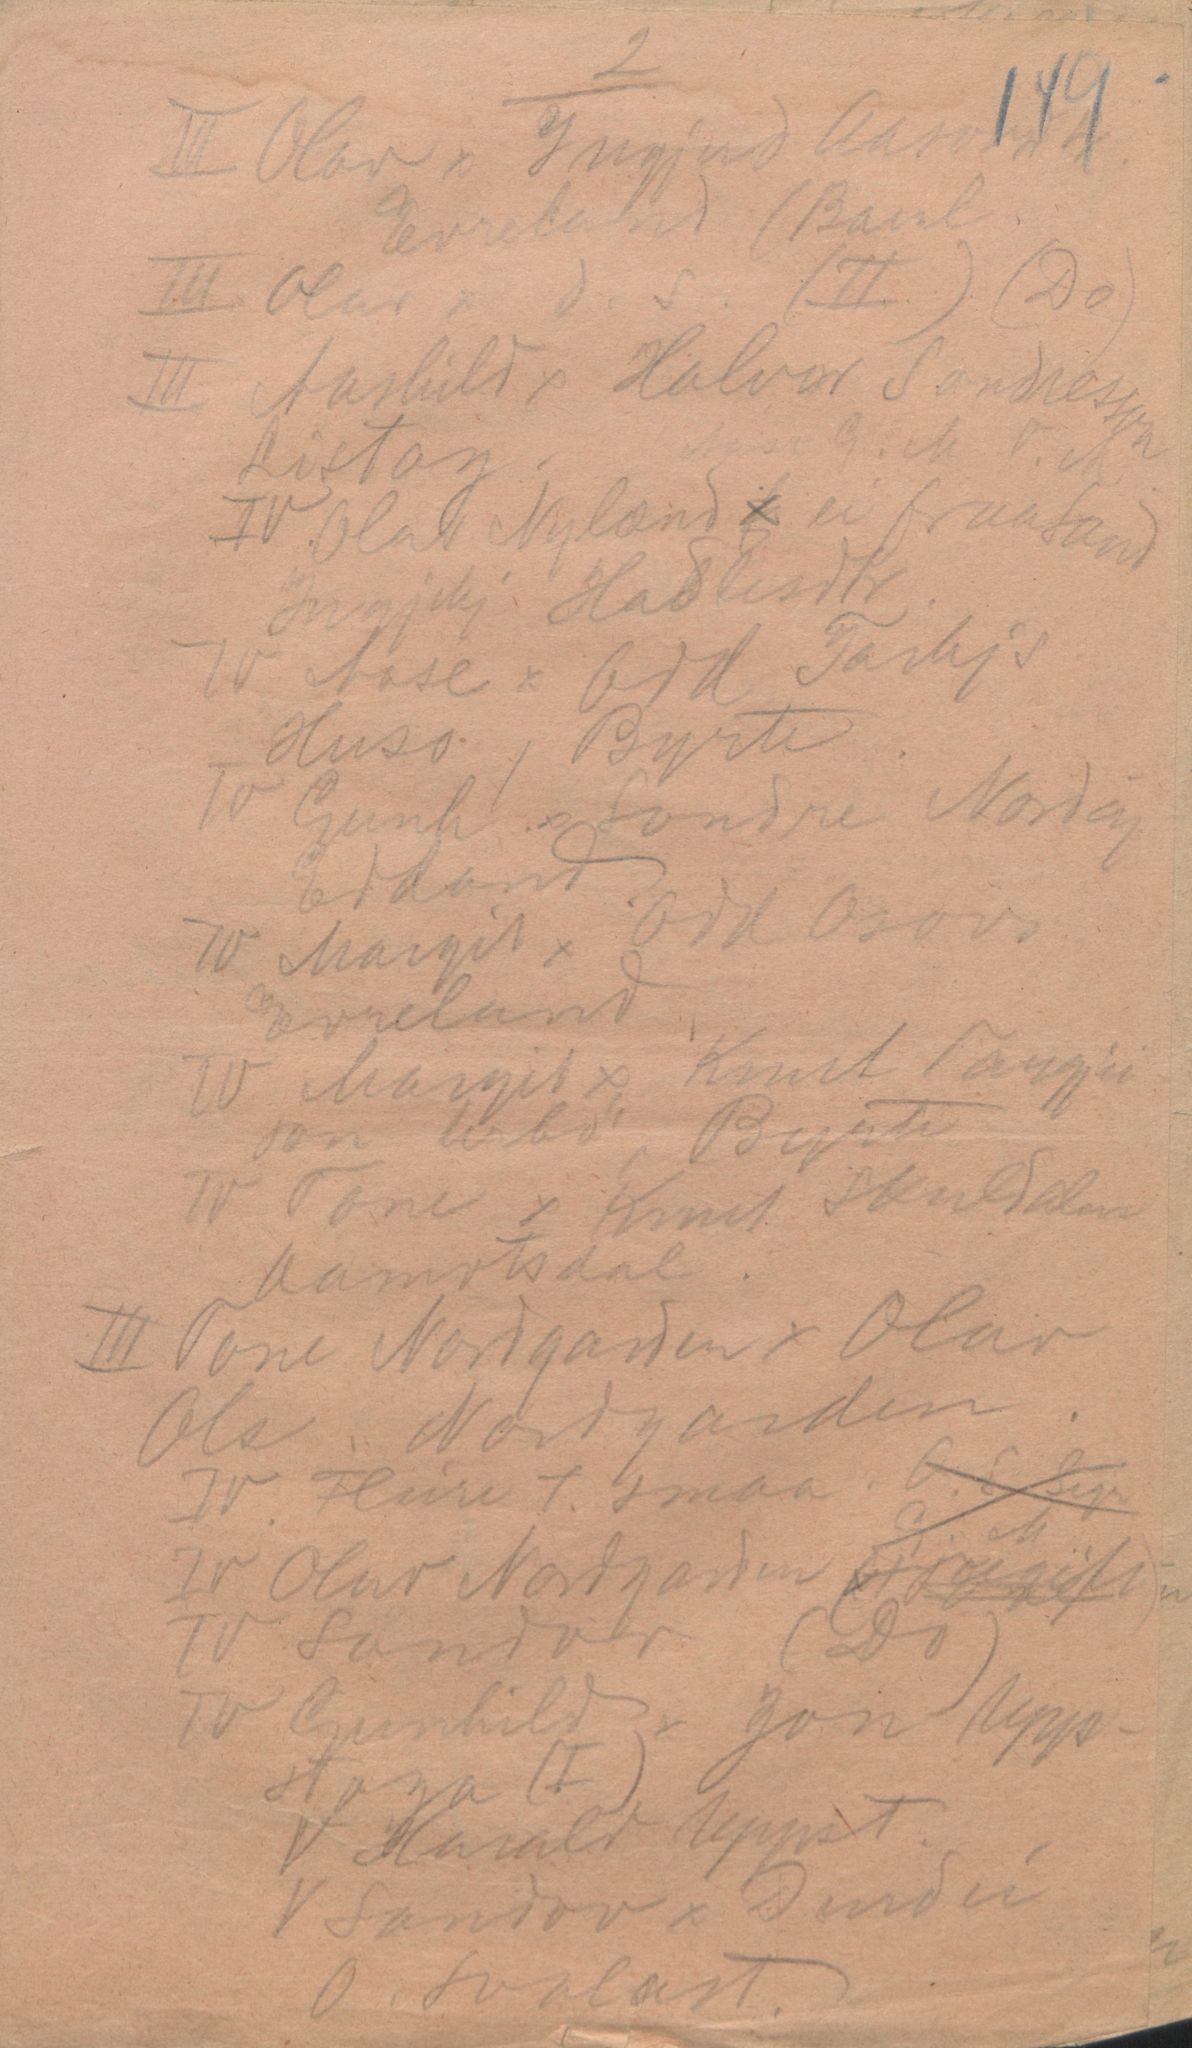 2
149
III Olav x Ingjerd Aasovs d.
Evreland (Barnl.
III Olav x d. s. (II) (Do)
III Aashild x Halvor Sondresson
Listog.
IV Olav Nyland x ei fraa Sand
Ingjebj Hadlesdtr.
IV Aase x Odd Tarkjs
Huso, Byrte.
IV Gunh. x Sondre Nordig.
Edland
IV Margit x Odd Osovs
Evreland
IV Margit x Knut Targjei
son Urbø, Byrte
IV Tone x Knut Skuldalen
Aamotsdal.
III Tone Nordgarden x Olav
Ols. Nordgarden.
IV. smaa.
IV Olav Nordgarden
IV Sondov (Do)
IV Gunhild x Jon Upp-
stoga (I)
V Harald Uppst.
V Sondov x Durdei
O. Svalast.